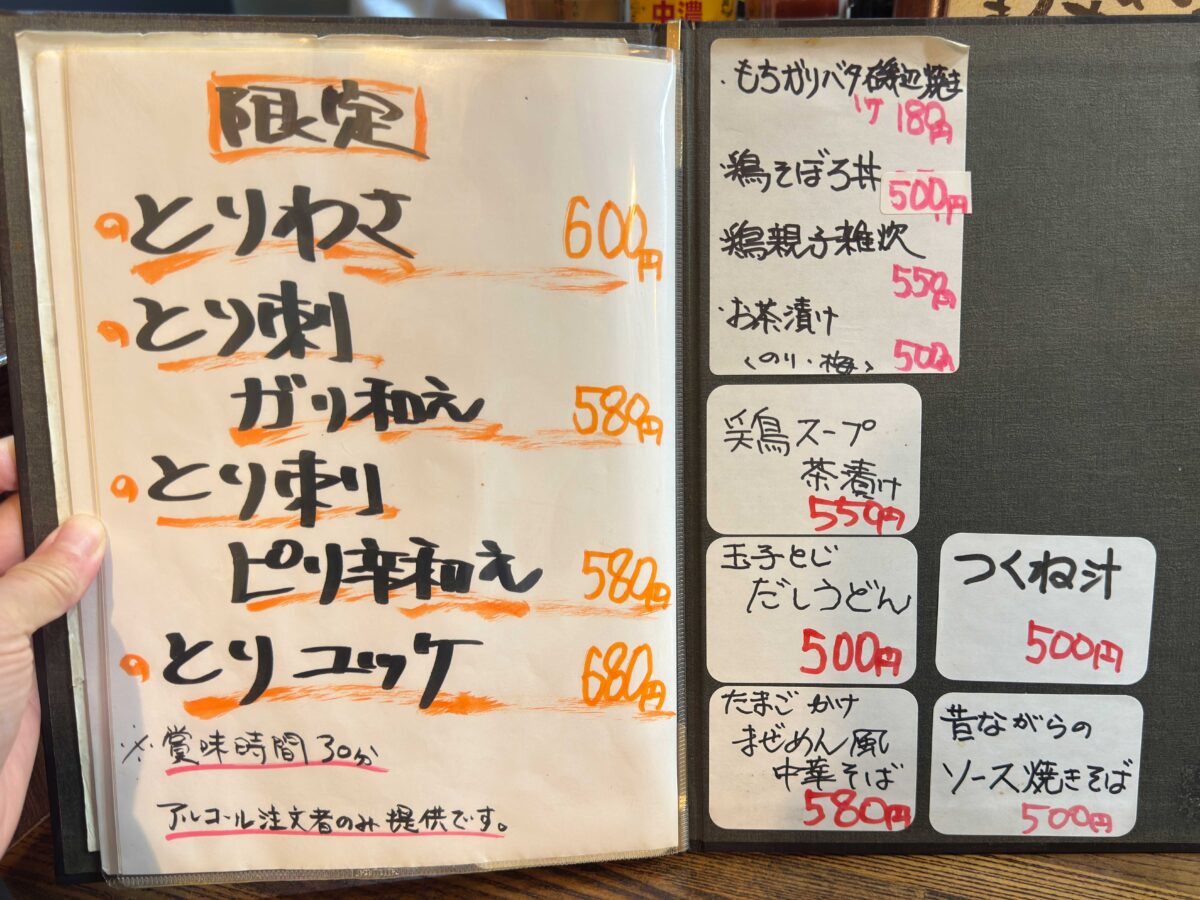 中濃
限定
とりわさ 600円
とり刺
ガリ和え 580円
とり刺り
ピリ辛和え 580円
とりユッケ 680円
※賞味時間30分
アルコール注文者のみ提供です。
・もちガリバタ磯辺焼き
1ケ 180円
・鶏そぼろ丼 500円
・鶏親子雑炊
550円
・お茶漬け
<のり・梅> 500円
鶏スープ
茶漬け
550円
玉子とじ
だしうどん
500円
つくね汁
500円
たまごかけ
まぜめん風
中華そば
580円
昔ながらの
ソース焼きそば
500円